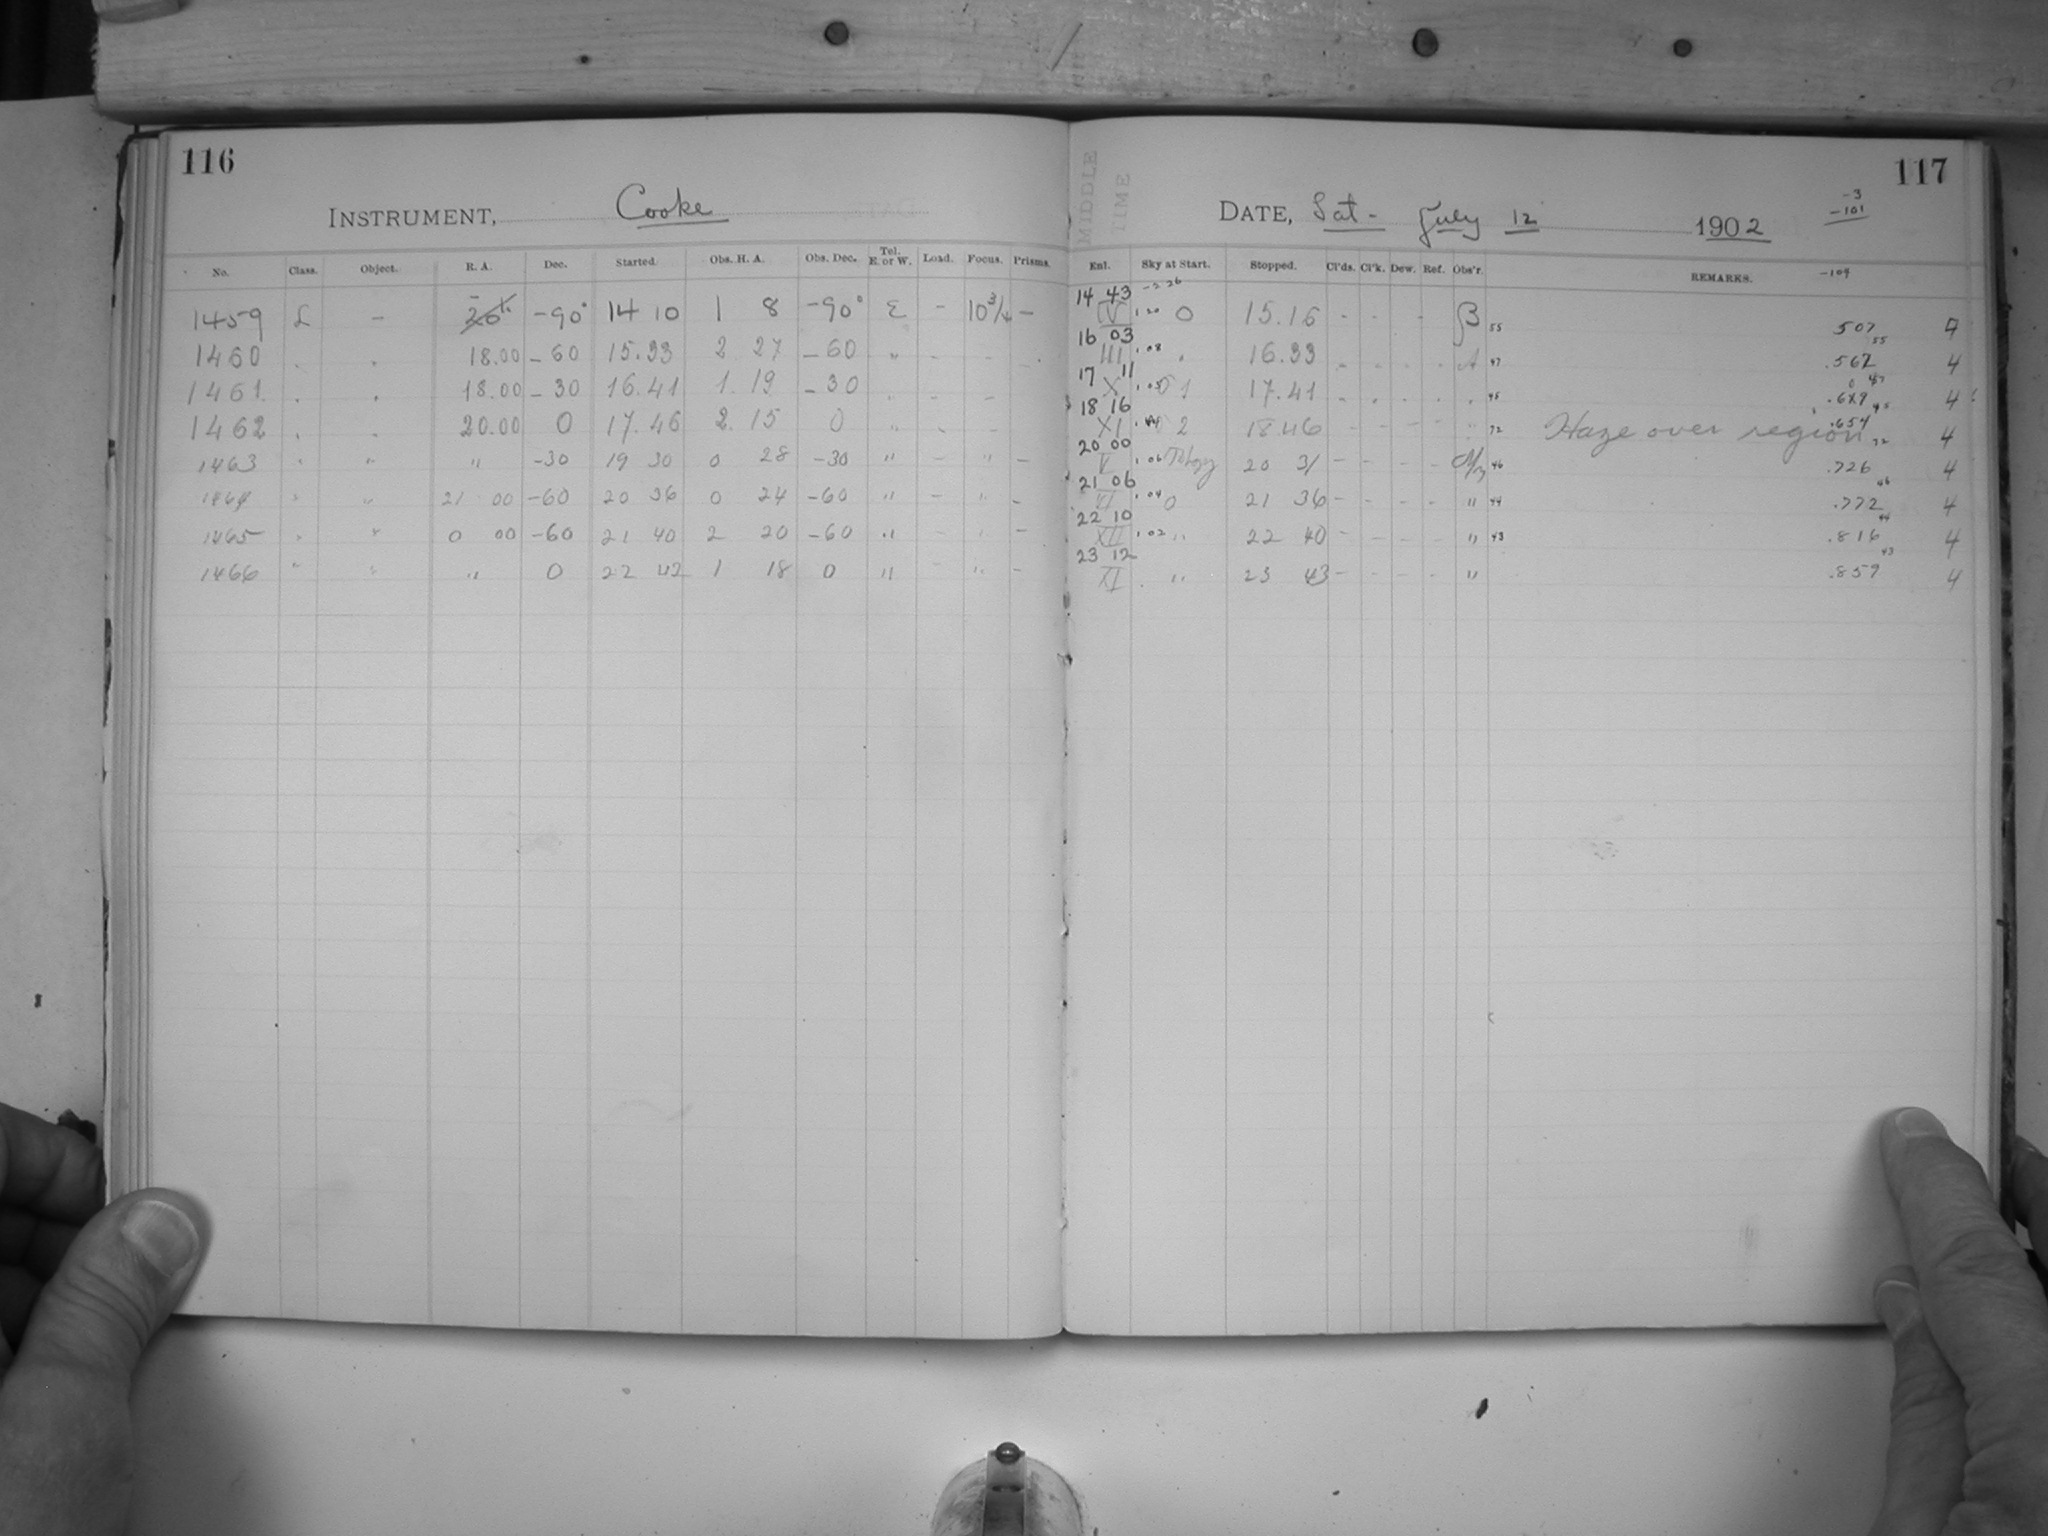 116
INSTRUMENT, Cooke
No. Class. Object. R. A. Dec. Started. Obs. H. A. Obs. Dec. Tel. E. or W. Load. Focus. Prisms.
1459 L - 20h -90° 14 10 1 8 -90° E - 10 3/4 -
1460 18.00 -60 15.33 2 27 -60 " - -
1461 18.00 -30 16.41 1.19 -30 - -
1462 20.00 0 17.46 2.15 0 " - -
1463 " " " -30 19 30 0 28 -30 " - " -
1464 " " 21 00 -60 20 36 0 24 -60 " - " -
1465 " " 0 00 -60 21 40 2 20 -60 " - " -
1466 " " " 0 22 42 1 18 0 " - " -
117
MIDDLE TIME
DATE, Sat- July 12 1902
-3
-101
-104
Enl. Sky at Start. Stopped. Cl'ds. Cl'k. Dew. Ref. Obs'r. REMARKS.
14 43 -2.26
IV 1.20 0 15.16 - - - B 55 507 55 4
16 03
III 1.08 16.33 - - - - A 47 .562 4
17 11
X 1.05 1 17.41 - - - 45 47 4
18 16
XI 2 18.46 - - - - " 72 Haze over region .654 72 4
20 00
V 1.06 20 31 - - - - 46 .726 46 4
21 06
VI 1.04 0 21 36 - - - - " 44 .772 44 4
22 10
XII 1.02 " 22 40 - - - - " 43 .816 43 4
23 12
XI " 23 43 - - - - " .859 4